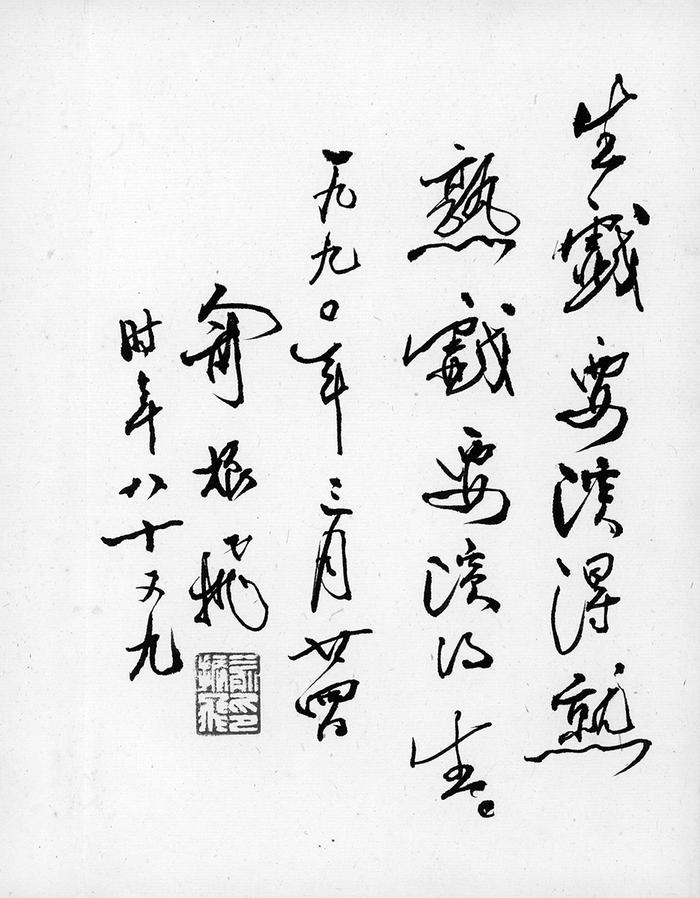 生戲要演得熟
熟戲要演得生。
一九九〇年三月廿四
俞振飛
时年八十又九
俞印振飛